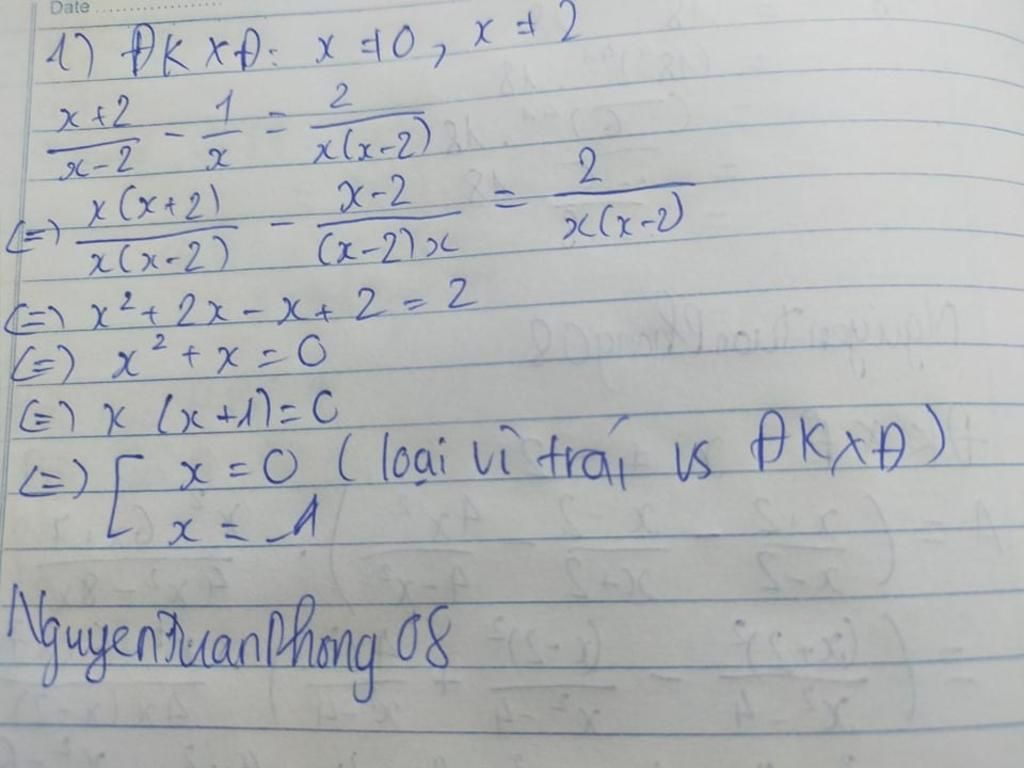 Date
1) ĐKXĐ: x ≠ 0, x ≠ 2
x+2/x-2 - 1/x = 2/x(x-2)
(=) x(x+2)/x(x-2) - x-2/(x-2)x = 2/x(x-2)
(=) x² + 2x - x + 2 = 2
(=) x² + x = 0
(=) x (x+1) = 0
(=) [ x = 0 (loại vì trái vs ĐKXĐ)
x = -1
NguyenXuanPhong 08